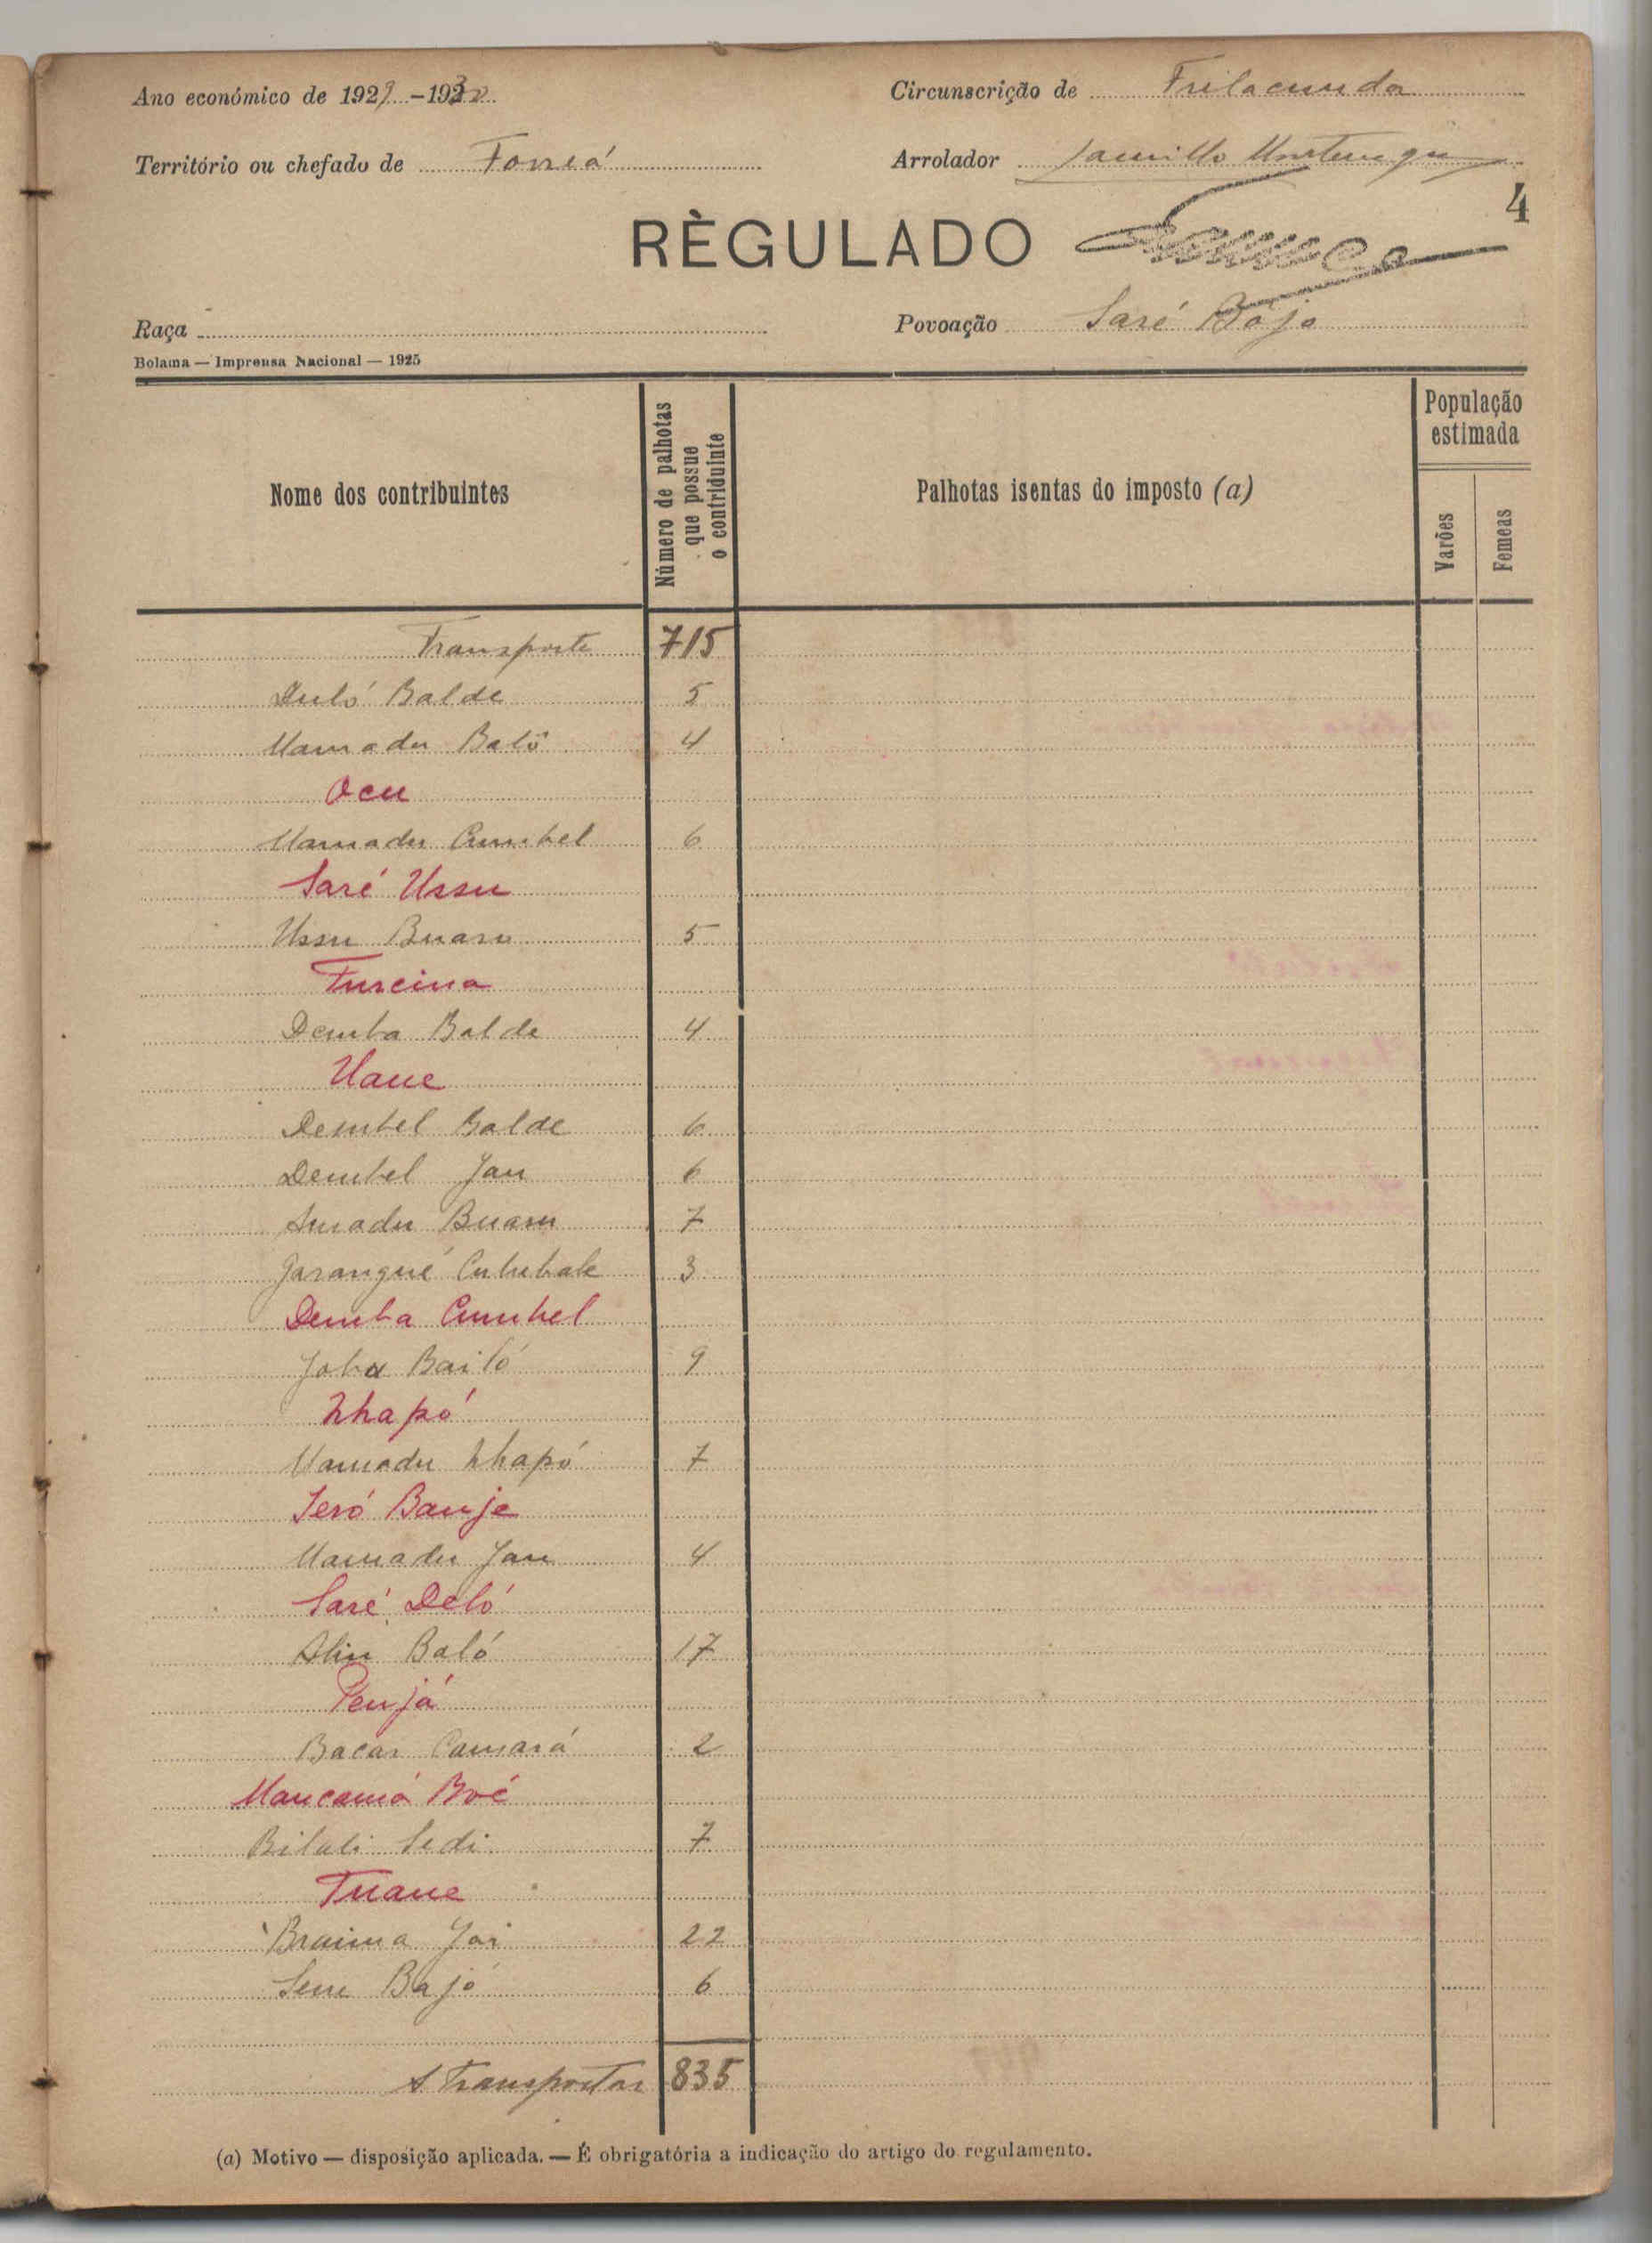 Ano económico de 1929-1930
Circunscrição de Fulacunda
Território ou chefado de Forreá
Arrolador
4
RÈGULADO
Raça
Povoação Saré Bójo
Bolama — Imprensa Nacional — 1925
Nome dos contribuintes
Número de palhotas
que possue
o contriduinte
Palhotas isentas do imposto (a)
População
estimada
Varões
Femeas
Transporte 715
Duló Balde 5
Mamadu Baló 4
Ocu
Mamadu Cumbel 6
Saré Ussu
Ussu Buaru 5
Furcina
Demba Balde 4
Uane
Dembel Balde 6
Dembel Jau 6
Amadu Buaru 7
Jarangué Culubale 3
Demba Cumbel
Joba Bailó 9
Nhapó
Mamadu Nhapó 7
Seró Banje
Mamadu Jau 4
Saré Deló
Aliu Baló 17
Penjá
Bacar Camará 2
Mancamá Boé
Bilali Sedi 7
Tuane
Braima Jai 22
Sene Bajó 6
A transportar 835
(a) Motivo — disposição aplicada. — É obrigatória a indicação do artigo do regulamento.